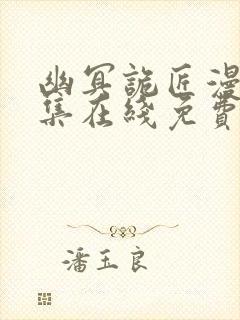 幽冥詭匠漫
集在綫免費
潘玉良